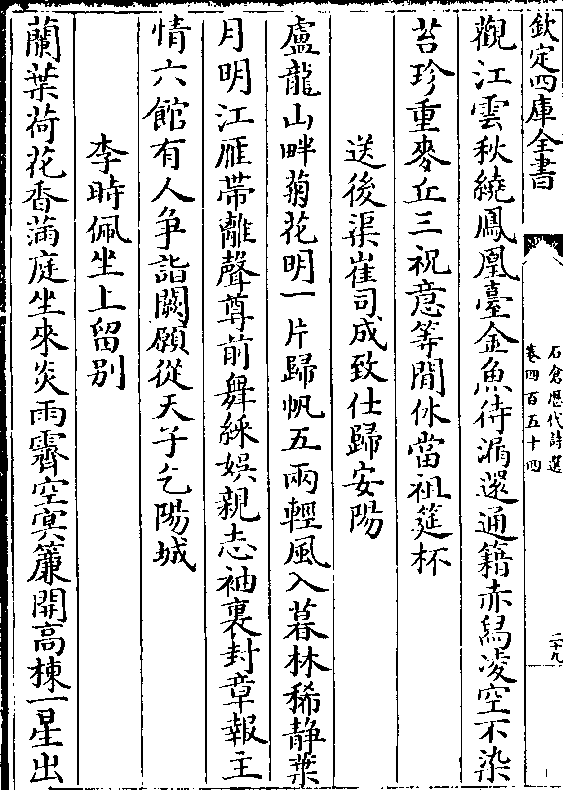 欽定四庫全書
石倉歴代詩選
卷四百五十四
二十九
觀江雲秋繞鳳凰臺金魚待漏還通籍赤舄凌空不染
苔珍重麥丘三祝意等閒休當祖筵杯
送後渠崔司成致仕歸安陽
盧龍山畔菊花明一片歸帆五兩輕風入暮林稀静葉
月明江雁帶離聲尊前舞綵娱親志袖裏封章報主
情六館有人争詣闕願從天子乞陽城
李時佩坐上留别
蘭葉荷花香滿庭坐來炎雨霽空冥簾開高棟一星出